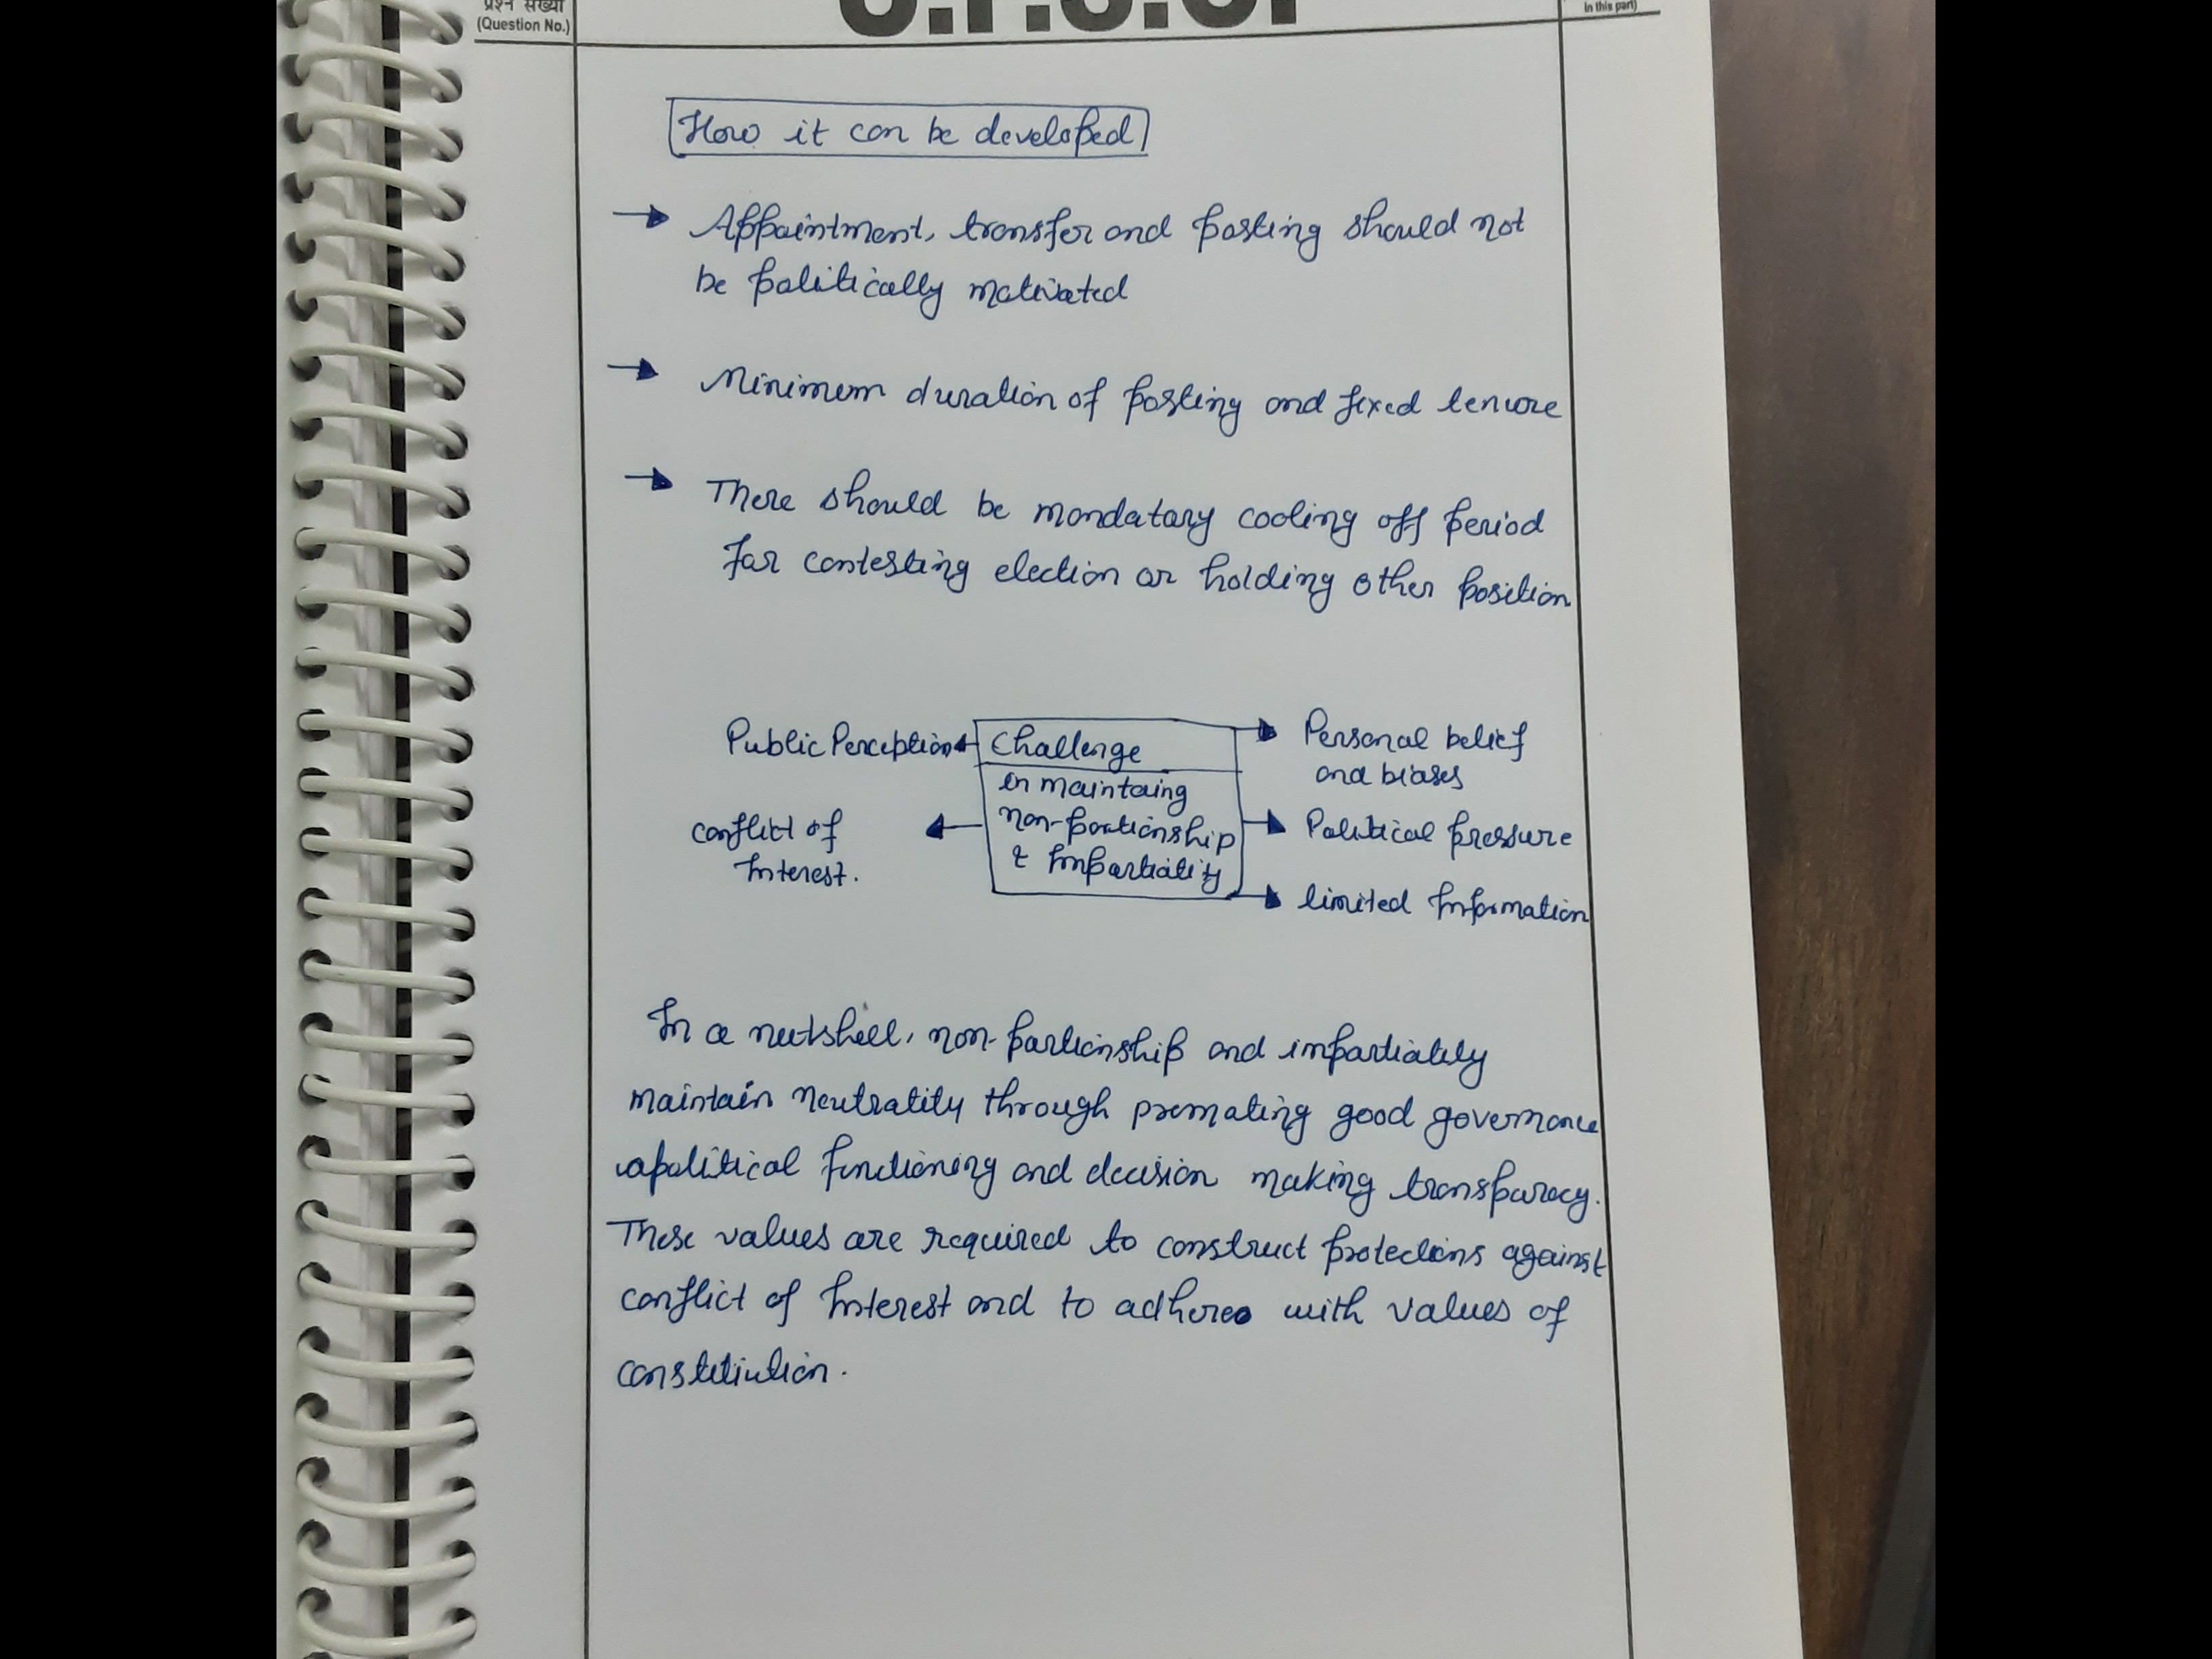 प्रश्न संख्या
(Question No.)
in this part)
How it can be developed
→ Appointment, transfer and posting should not
be politically motivated
→ Minimum duration of posting and fixed tenure
→ There should be mandatary cooling off period
for contesting election or holding other position
Public Perception
Challenge
in maintaing
non-partionship
& Impartiality
Personal belief
and biases
Conflict of
Interest.
Political pressure
limited Information
In a nutshell, non-partionship and impartiality
maintain neutrality through promoting good governance
apolitical functioning and decision making transparacy.
These values are required to construct protections against
conflict of Interest and to adhere with values of
constitiution.